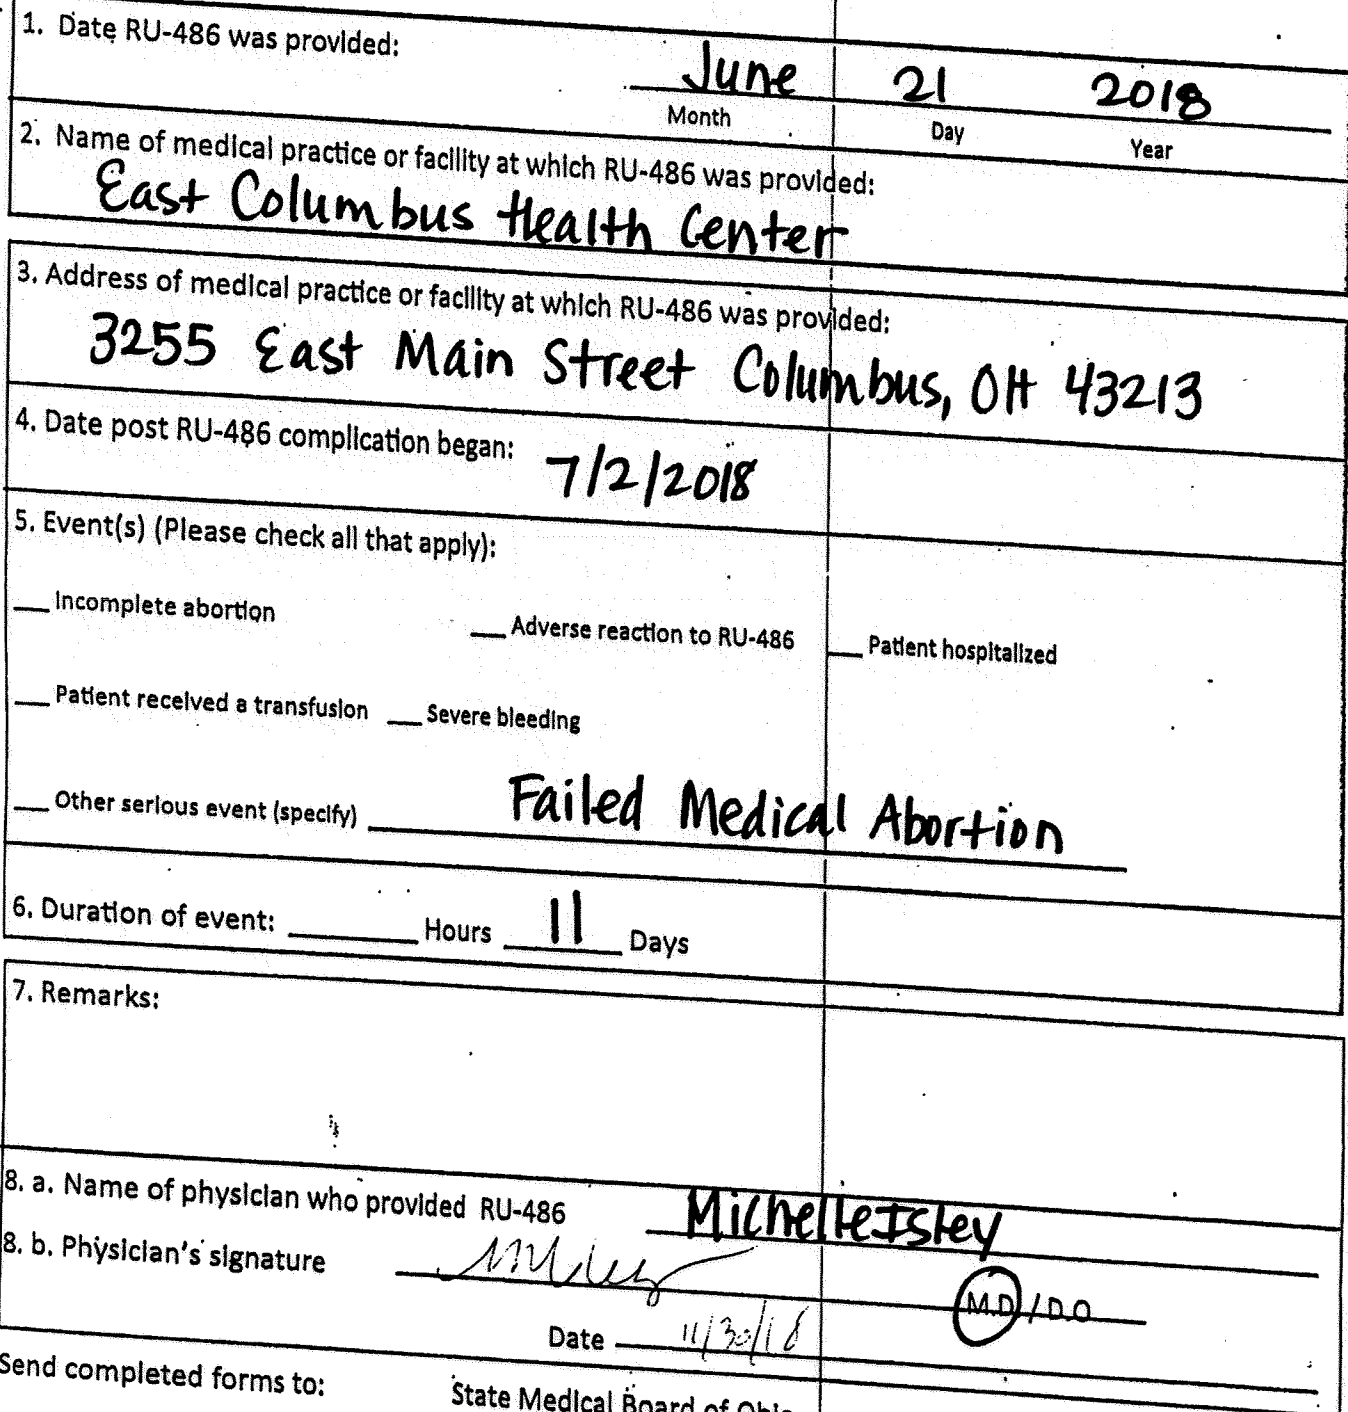 1. Date RU-486 was provided:
June 21 2018
Month Day Year
2. Name of medical practice or facility at which RU-486 was provided:
East Columbus Health Center
3. Address of medical practice or facility at which RU-486 was provided:
3255 East Main Street Columbus, OH 43213
4. Date post RU-486 complication began: 7/2/2018
5. Event(s) (Please check all that apply):
__ Incomplete abortion __ Adverse reaction to RU-486 __ Patient hospitalized
__ Patient received a transfusion __ Severe bleeding
__ Other serious event (specify) Failed Medical Abortion
6. Duration of event: ____ Hours 11 Days
7. Remarks:
8. a. Name of physician who provided RU-486 Michelle Isley
8. b. Physician's signature
M.D / D.O
Date 11/30/18
Send completed forms to: State Medical Board of Ohio